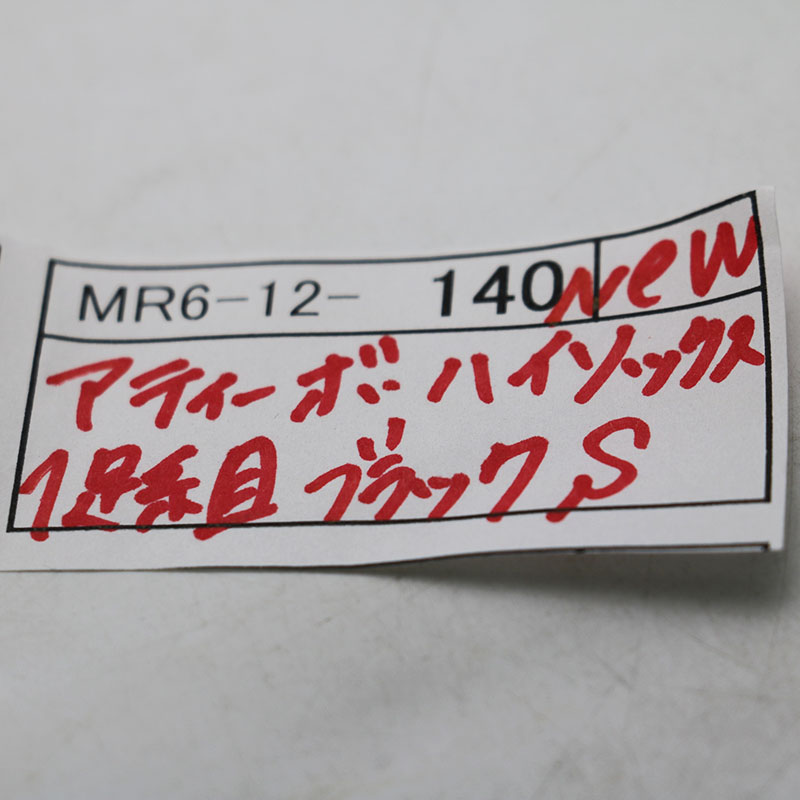 MR6-12- 140 New
アティーボ ハイソックス
1足組 ブラック S